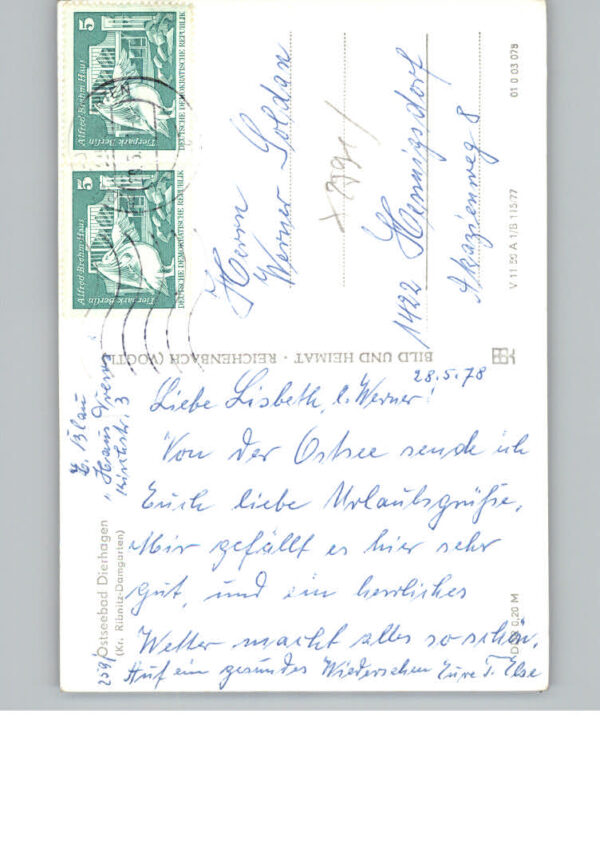 5
Alfred Brehm Haus
Tierpark Berlin
DEUTSCHE DEMOKRATISCHE REPUBLIK
5
Alfred Brehm Haus
Tierpark Berlin
DEUTSCHE DEMOKRATISCHE REPUBLIK
Herrn
Werner Goldan
1422 Hennigsdorf
Akazienweg 8
V 11 50 A 1/B 115/77
01 0 03 078
BILD UND HEIMAT · REICHENBACH (VOGTL
28.5.78
Liebe Lisbeth, l. Werner!
Von der Ostsee sende ich
Euch liebe Urlaubsgrüße.
Mir gefällt es hier sehr
gut, und ein herrliches
Wetter macht alles so schön.
Auf ein gesundes Wiedersehen Eure T. Else
E. Blau
"Haus
Kirchstr. 3
Ostseebad Dierhagen
(Kr. Ribnitz-Damgarten)
259/
0,20 M